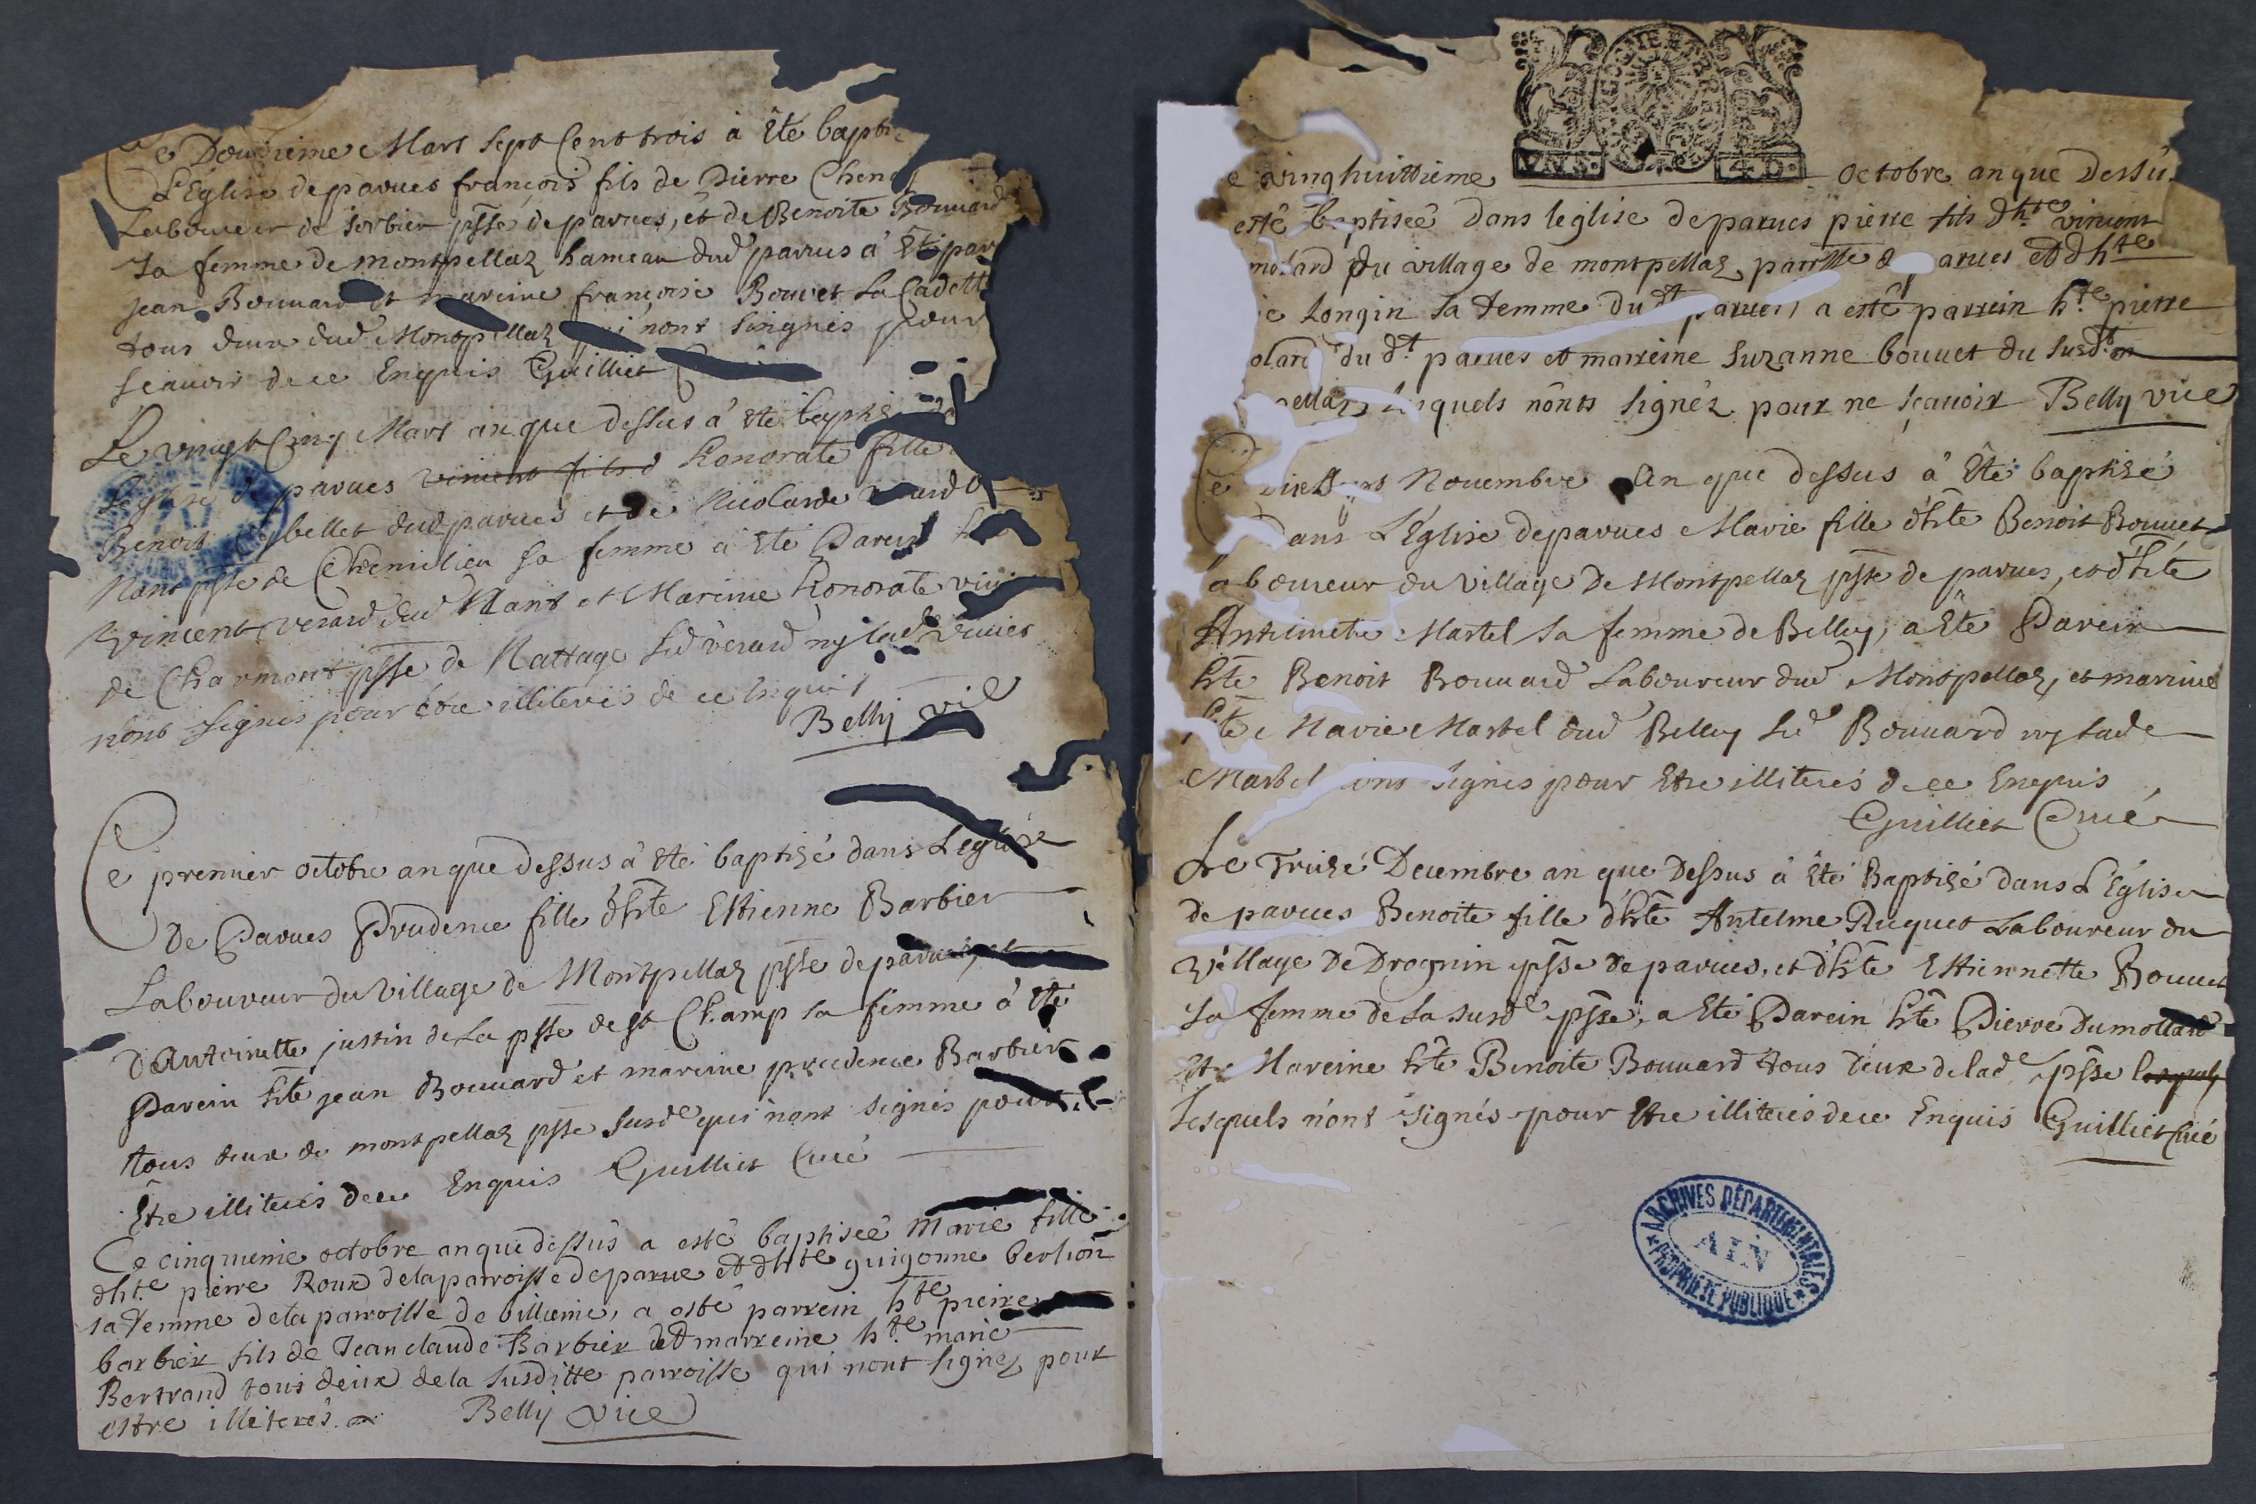 Ce Douzieme Mars Sept Cent trois à Eté bapti
L'Eglise de parues françois fils de Pierre Chen
Laboureur de Sorbier psse de parues, et de Benoite Bouuard
Sa femme de montpellaz hameau dud parues à Eté par
jean Bouuard et mareine françoise Bouuet La Cadette
tous deux dud Montpellaz qui nont Signés pour
Scauoir de ce Enquis Guilliet
Le vingt Cinq Mars an que dessus à Eté baptisé
L'eglise de parues vincent fils d honorate fille
Benoit bellet dud parues et de Nicolarde
Nant psse de Chemilieu Sa femme à Eté Parein
vincent verard dud Nant et Mareine honorate
de Charmont psse de Nattage Led verard ny lad
nont Signés pour Etre illiterés de ce Enquis
Belly vic
Ce premier octobre an que dessus à Eté baptisé dans L'eglise
De Parues Prudence fille d'hte Estienne Barbier
Laboureur du Village de Montpellaz psse de parues, et
D'Antoinette justin de La psse de St Champ sa femme à Eté
Parein hte jean Bouuard et mareine prudence Barbier
tous deux de montpellaz psse Susde qui nont signés pour
Etre illiterés de ce Enquis Guilliet Curé
Ce cinquieme octobre an que dessus a esté baptiseé Marie fille
dhte pierre Roux de la parroisse de parue et dhte guigonne berlion
sa femme de la parroisse de billieme, a esté parrein hte pierre
barbier fils de Jean claude Barbier et marreine hte marie
Bertrand tous deux de la Susditte parroisse qui nont signez pour
estre illiterés. Belly vice
UNS. 4. D.
e vinghuittieme octobre an que Dessus
esté baptiseé dans leglise de parues pierre fils dhte vincent
molard du village de montpellaz, parroisse de parues et dhte
Longin sa femme du dt parues, a esté parrein hte pierre
olard du dt parues et marreine Suzanne bouuet du susdt
pellaz, lesquels nônts signéz pour ne sçauoir Belly vice
Ce Nouembre An que dessus à Eté baptisé
Dans L'Eglise de parues Marie fille d'hte Benoit Bouuet
Laboureur du Village De Montpellaz psse de parues, et d'hte
Antelmette Martel sa femme de Belley, a Eté Parein
hte Benoit Bouuard Laboureur dud Montpellaz, et mareine
hte Marie Martel dud Belley Led Bouuard ny lade
Martel nont signés pour Etre illiterés de ce Enquis
Guilliet Curé
Le Treizé Decembre an que Dessus à Eté Baptisé dans L'Eglise
de parues Benoite fille d'hte Antelme Riquet Laboureur du
Village De Drognin psse de parues, et d'hte Estiennette Bouuet
Sa femme de La susde psse, a Eté Parein hte Pierre Dumollard
et Mareine hte Benoite Bouuard tous deux de lade psse lesquels
Lesquels n'ont signés pour Etre illiterés de ce Enquis Guilliet Curé
ARCHIVES DÉPARTEMENTALES
AIN
PROPRIÉTÉ PUBLIQUE